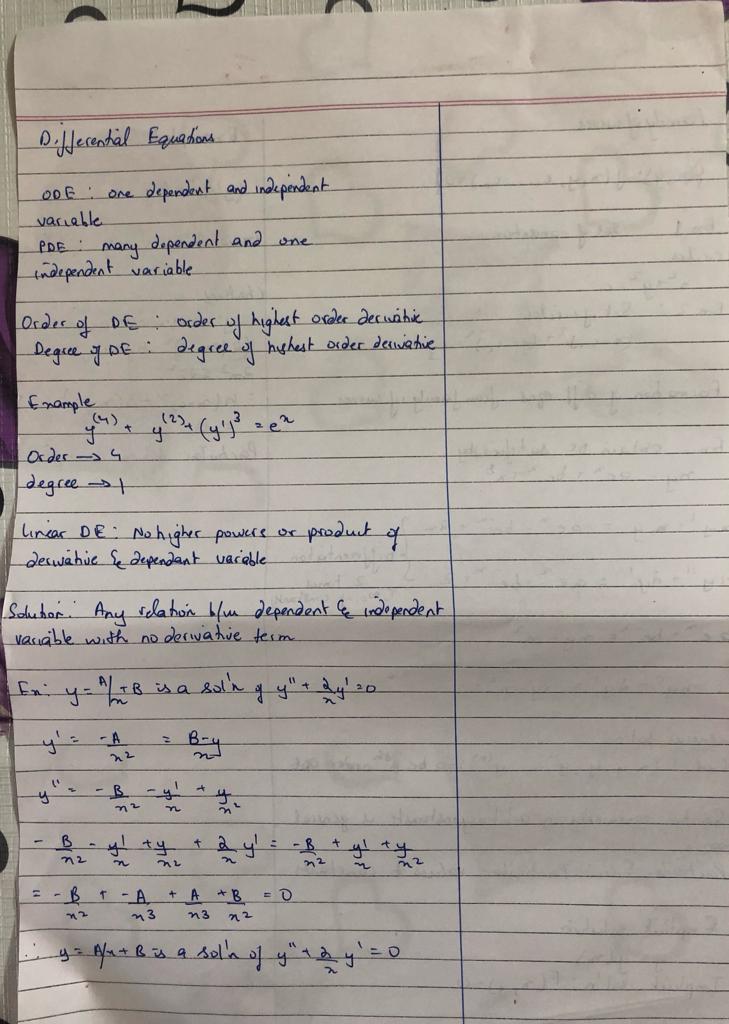 Differential Equations
ODE : one dependent and independent
variable
PDE : many dependent and one
independent variable
Order of DE : order of highest order derivative
Degree of DE : degree of highest order derivative
Example
y⁽⁴⁾ + y⁽²⁾ + (y')³ = eˣ
Order → 4
degree → 1
Linear DE : No higher powers or product of
derivative & dependant variable
Solution: Any relation b/w dependent & independent
variable with no derivative term
Ex: y = A/x + B is a sol'n of y'' + 2/x y' = 0
y' = -A/x² = B-y/x
y'' = -B/x² - y'/x + y/x²
- B/x² - y'/x + y/x² + 2/x y' = -B/x² + y'/x + y/x²
= -B/x² + -A/x³ + A/x³ + B/x² = 0
∴ y = A/x + B is a sol'n of y'' + 2/x y' = 0